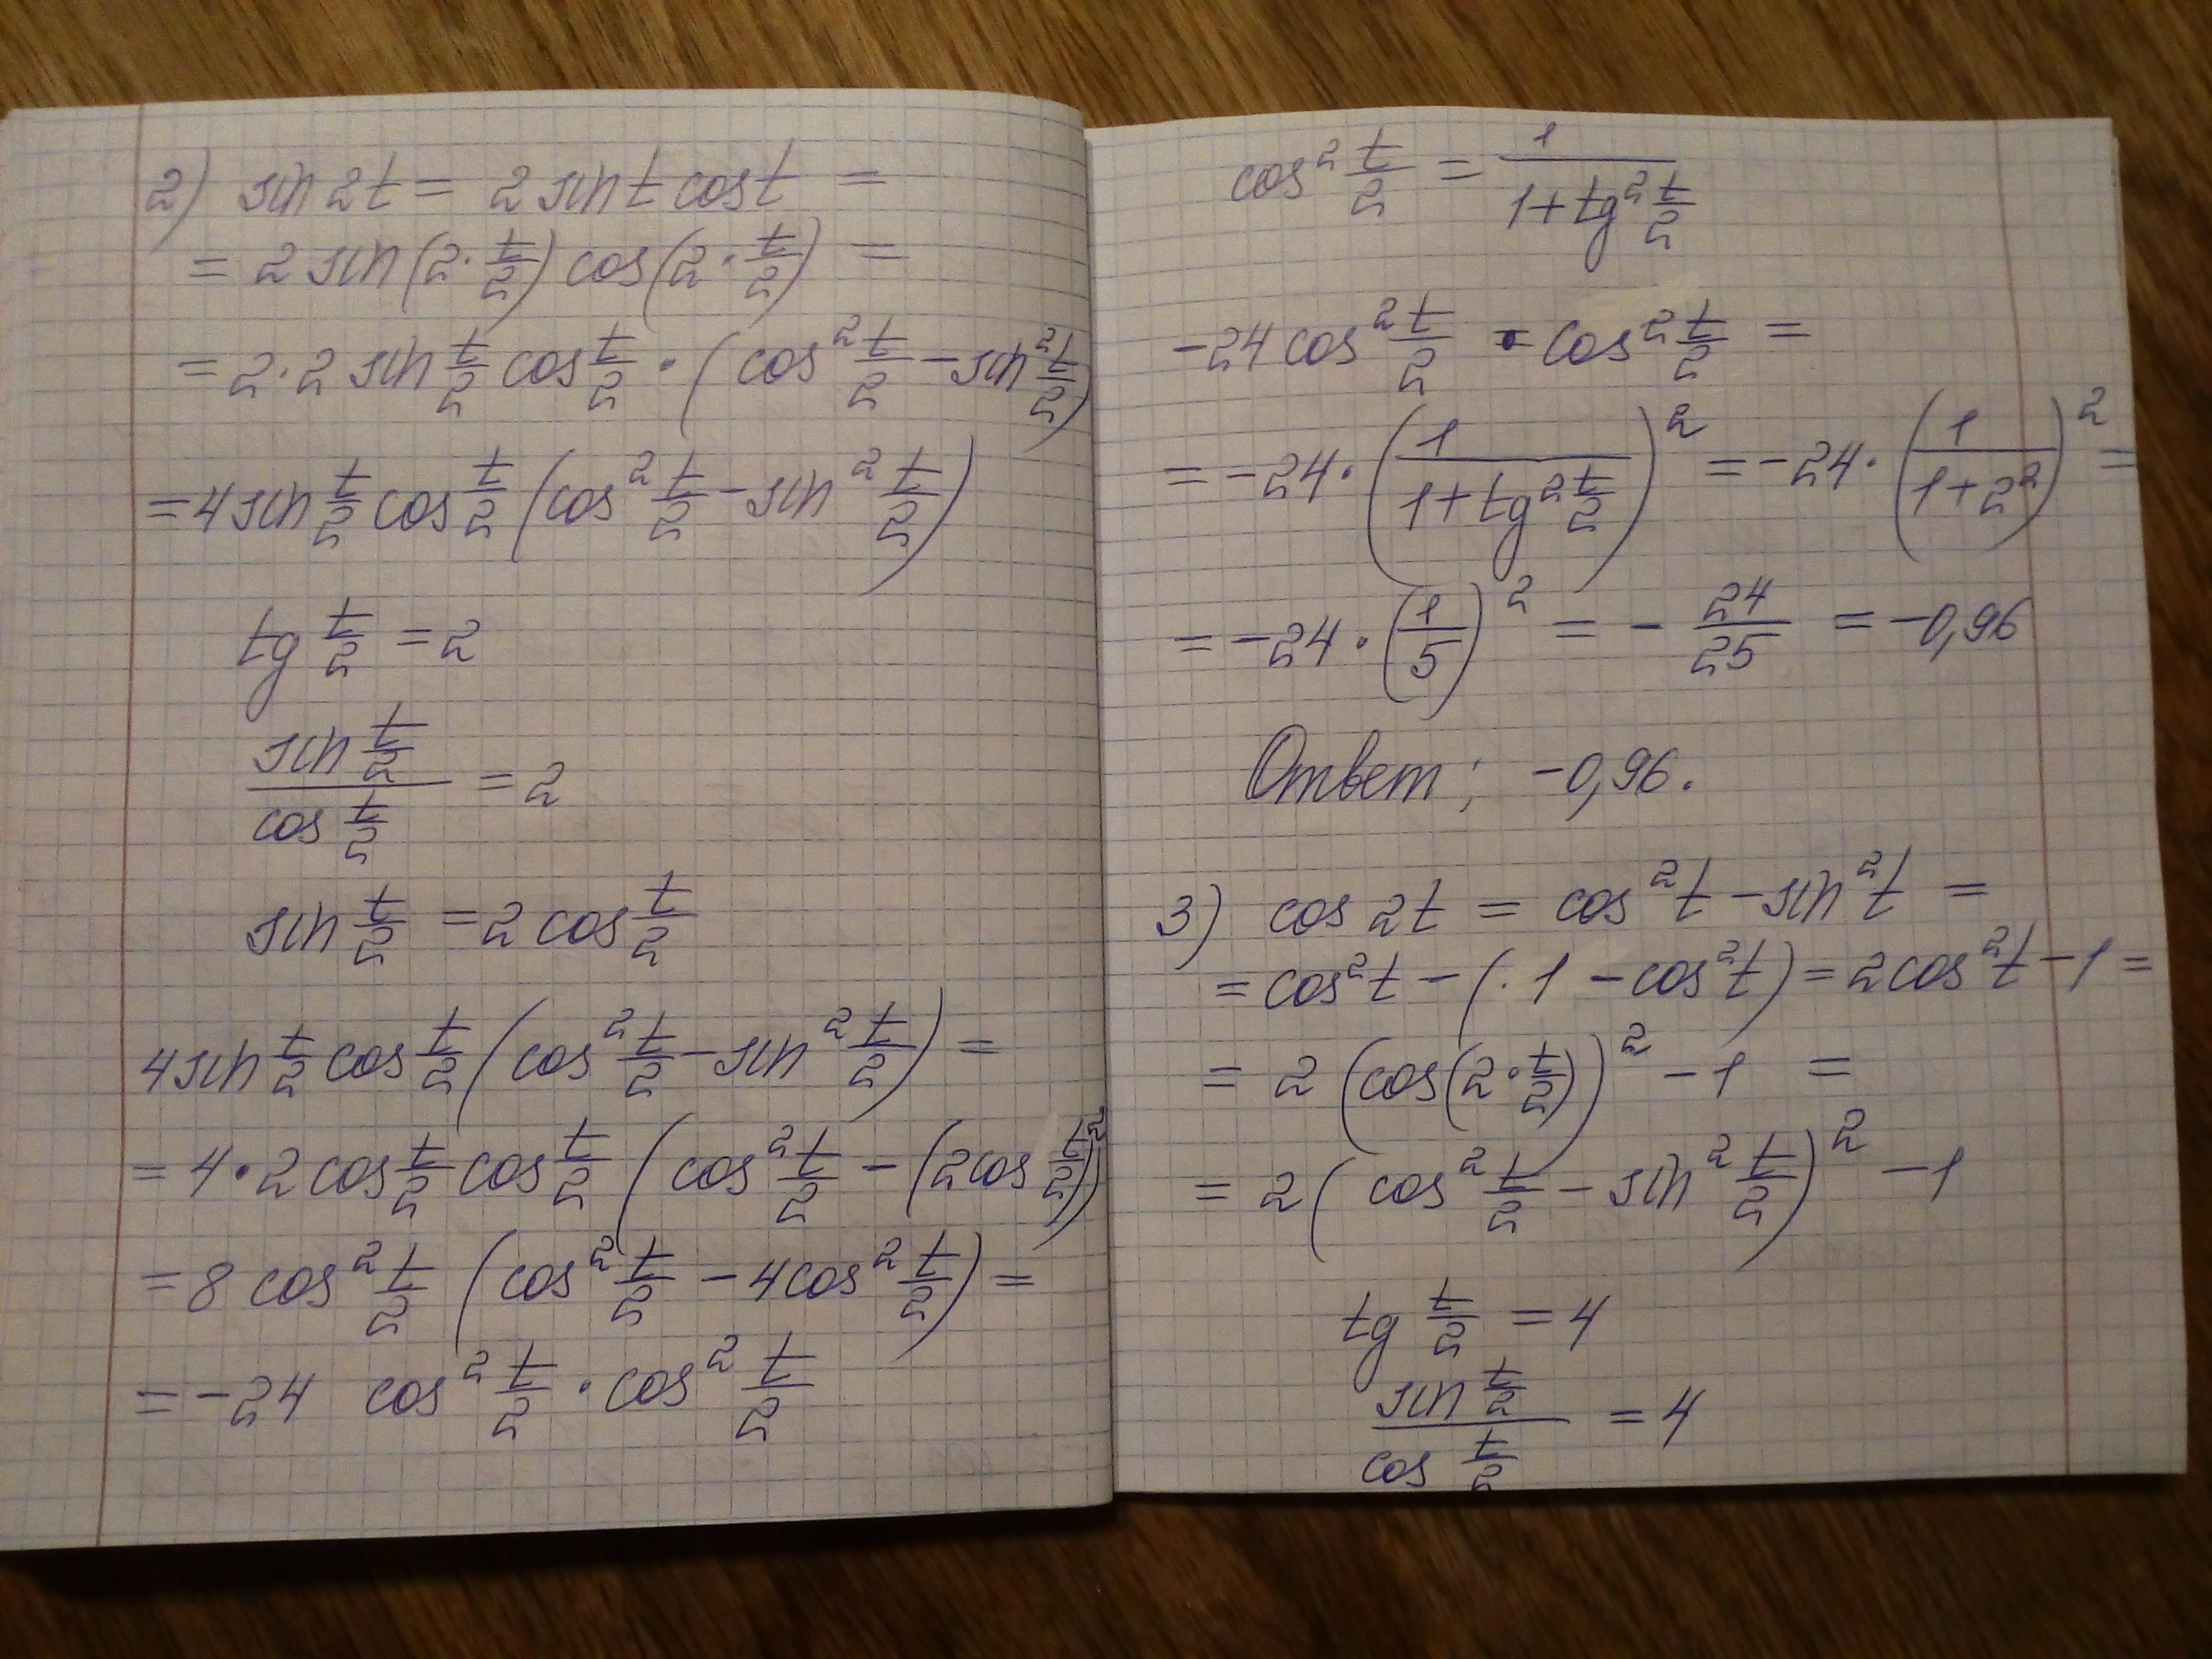 2) sin 2t = 2 sin t cos t =
= 2 sin(2·t/2) cos(2·t/2) =
= 2·2 sin t/2 cos t/2 · (cos² t/2 − sin² t/2)
= 4 sin t/2 cos t/2 (cos² t/2 − sin² t/2)
tg t/2 = 2
sin t/2 / cos t/2 = 2
sin t/2 = 2 cos t/2
4 sin t/2 cos t/2 (cos² t/2 − sin² t/2) =
= 4·2 cos t/2 cos t/2 (cos² t/2 − (2cos t/2)²)
= 8 cos² t/2 (cos² t/2 − 4cos² t/2) =
= −24 cos² t/2 · cos² t/2
cos² t/2 = 1/(1+tg² t/2)
−24 cos² t/2 · cos² t/2 =
= −24·(1/(1+tg² t/2))² = −24·(1/(1+2²))² =
= −24·(1/5)² = − 24/25 = −0,96
Ответ; −0,96.
3) cos 2t = cos² t − sin² t =
= cos² t − (1 − cos² t) = 2cos² t − 1 =
= 2 (cos(2·t/2))² − 1 =
= 2 (cos² t/2 − sin² t/2)² − 1
tg t/2 = 4
sin t/2 / cos t/2 = 4